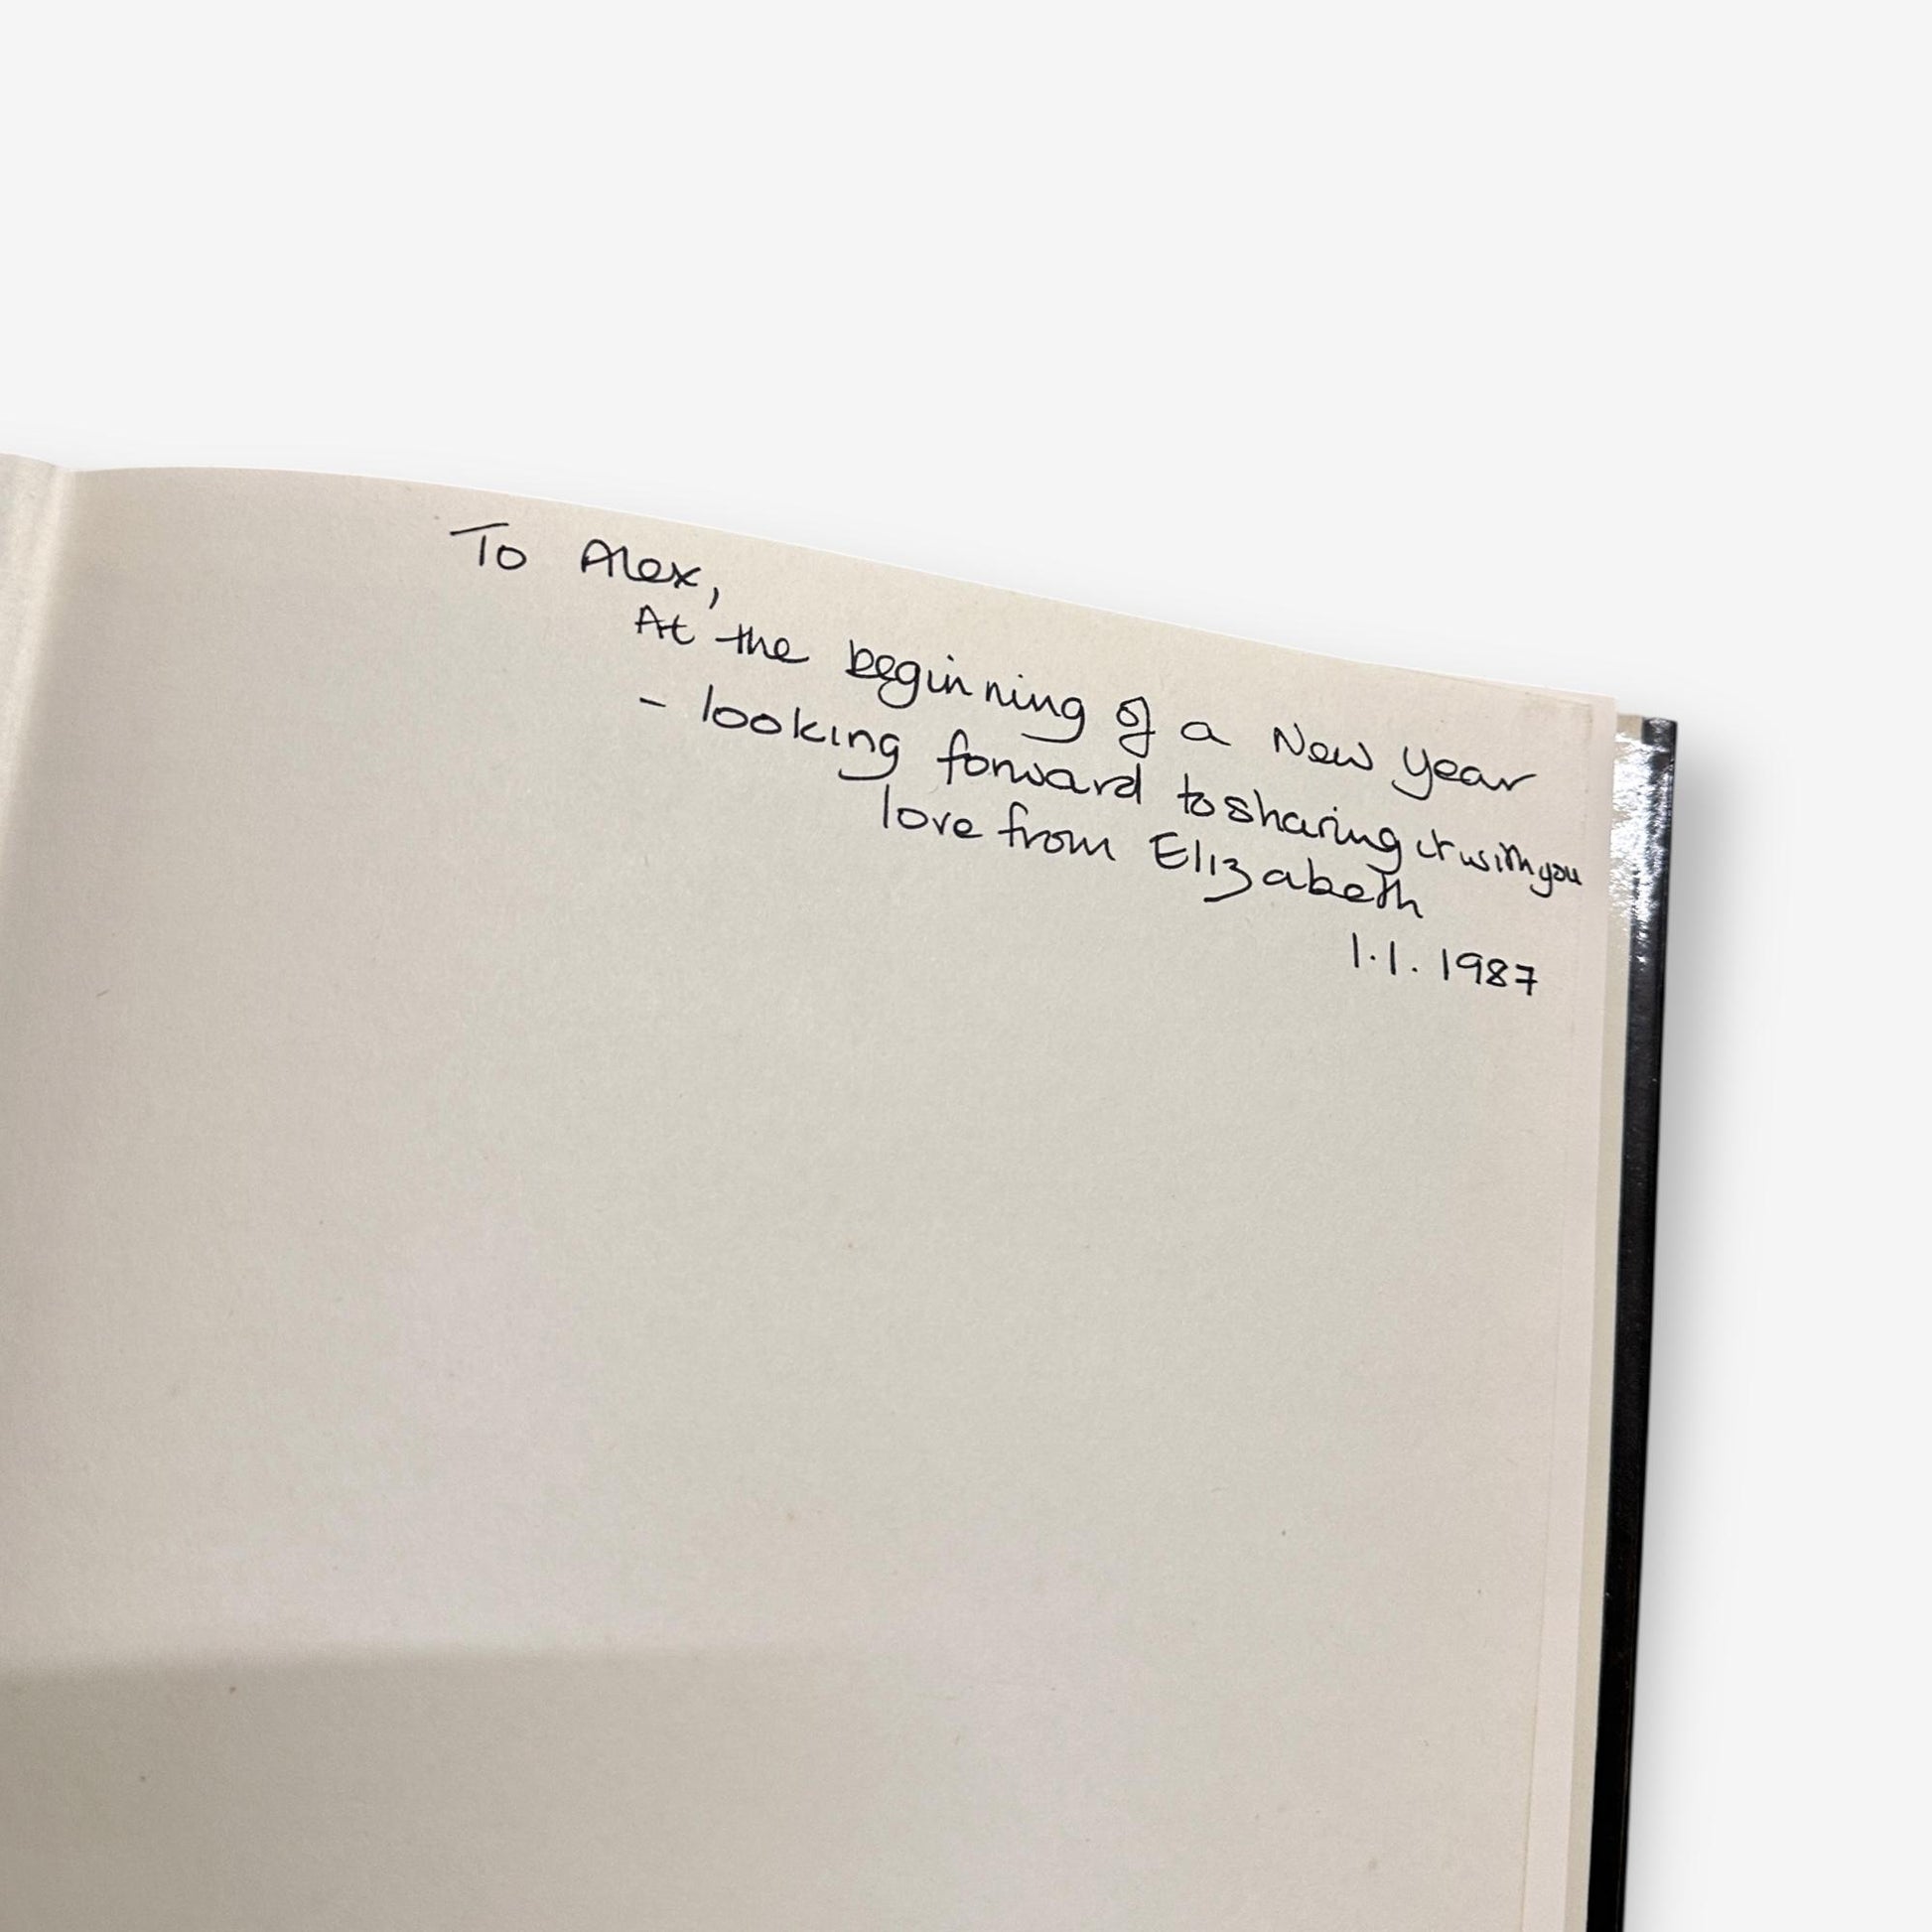 To Alex,
At the beginning of a New Year
- looking forward to sharing it with you
love from Elizabeth
1.1.1987